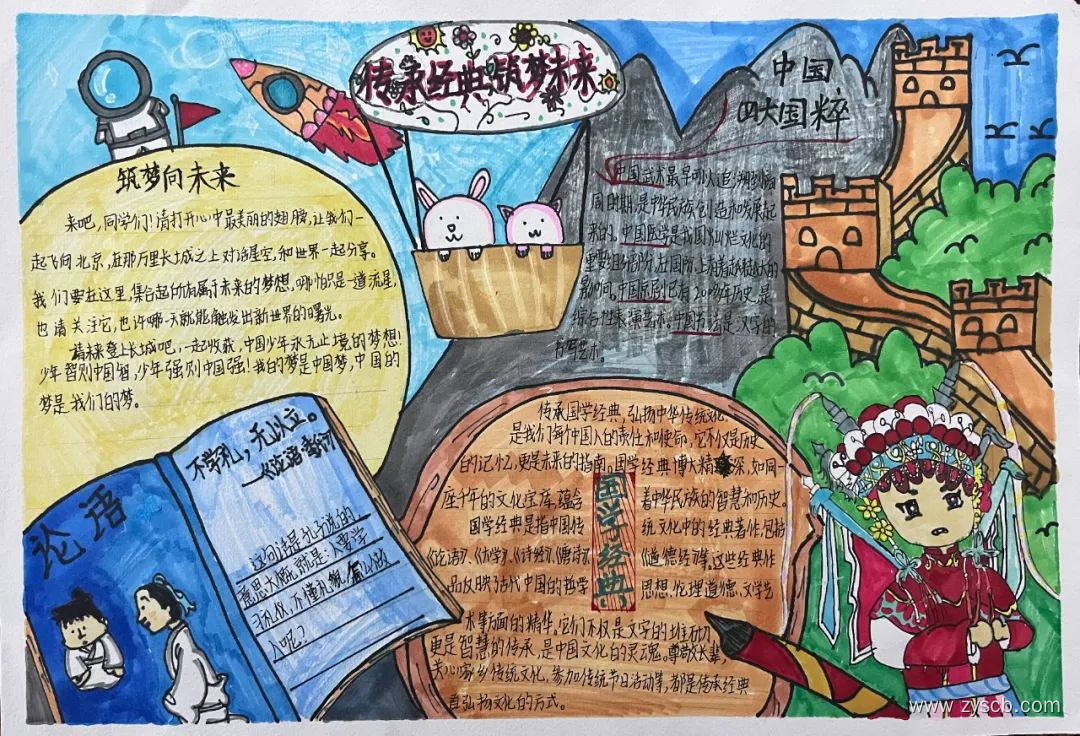 传承经典 筑梦未来
筑梦向未来
来吧,同学们!请打开心中最美丽的翅膀,让我们一
起飞向北京,在那万里长城之上对话星空,和世界一起分享。
我们要在这里,集合起所有属于未来的梦想。哪怕只是一道流星,
也请关注它,也许哪一天就能触发出新世界的曙光。
请来登上长城吧,一起收获,中国少年永无止境的梦想!
少年智则中国智,少年强则中国强!我的梦是中国梦,中国的
梦是我们的梦。
中国
四大国粹
中国武术最早可以追溯到商
周时期,是中华民族创造和发展起
来的。中国医学是我国灿烂文化的
重要组成部分,在国际上有着越来越大的
影响。中国京剧已有200多年历史,是
综合性表演艺术。中国书法是汉字的
书写艺术。
论语
不学礼,无以立。
——《论语·季氏》
这句话是孔子说的
意思大概就是:不要学
习礼仪,不懂礼貌,怎么做
人呢?
国学经典
传承国学经典,弘扬中华传统文化,
是我们每个中国人的责任和使命,它不仅是历史
的记忆,更是未来的指南。国学经典博大精深,如同一
座千年的文化宝库,蕴含着中华民族的智慧和历史。
国学经典是指中国传统文化中的经典著作,包括
《论语》、《大学》、《诗经》、《唐诗》、《道德经》等。这些经典作
品反映了古代中国的哲学思想、伦理道德、文学艺
术等方面的精华。它们不仅是文字的堆砌,
更是智慧的传承,是中国文化的灵魂。尊敬长辈,
关心家乡传统文化,参加传统节日活动等,都是传承经典
弘扬文化的方式。
www.zyscb.com